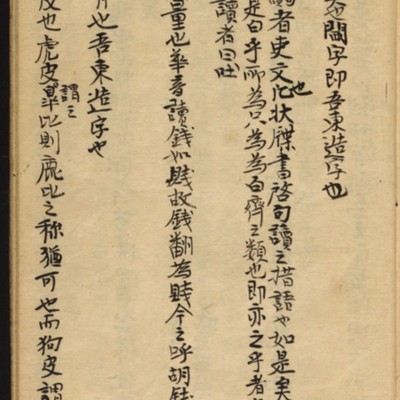 字即吾東造字也
者吏文也凡状牒書啓句讀之措語也如是矣
是白乎所為只為為白齊之類也即亦之乎者
讀者曰吐
量也華音讀錢如賤故錢翻為賤今之呼胡錢
也吾東造字也
皮也虎皮謂之皐比則鹿比之称猶可也而狗皮謂